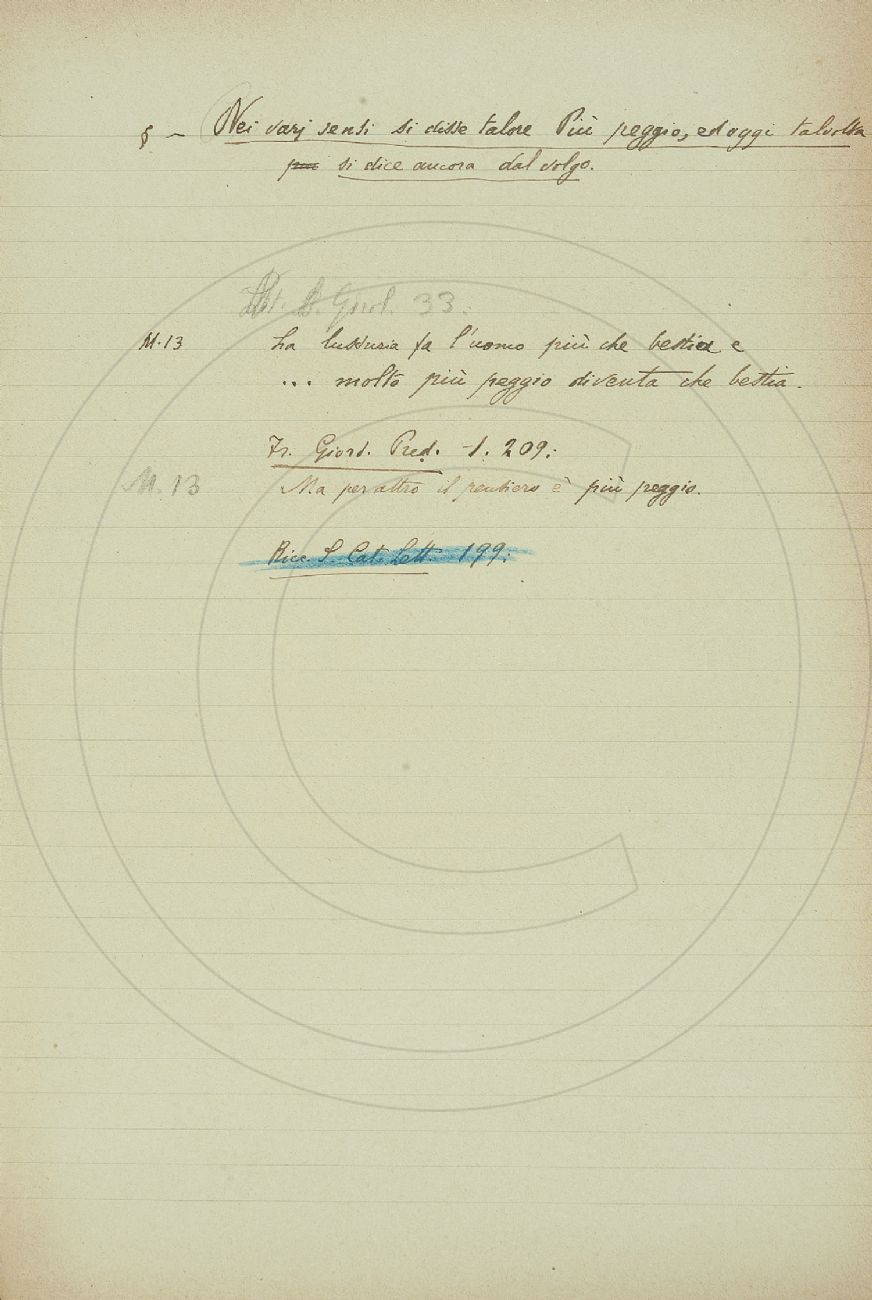 § — Nei varj sensi si disse talora Più peggio, ed oggi talvolta
si dice ancora dal volgo.
S. Girol. 33.
M. 13 La lussuria fa l'uomo più che bestia e
... molto più peggio diventa che bestia.
Fr. Giord. Pred. 1. 209:
M. 13 Ma per altro il pensiero è più peggio.
Ricc. S. Cat. Lett. 199: